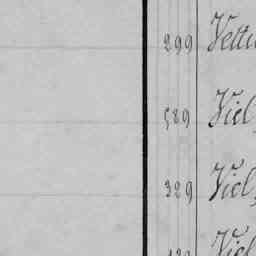 299 Vettu
589 Viel,
329 Viel,
Viel